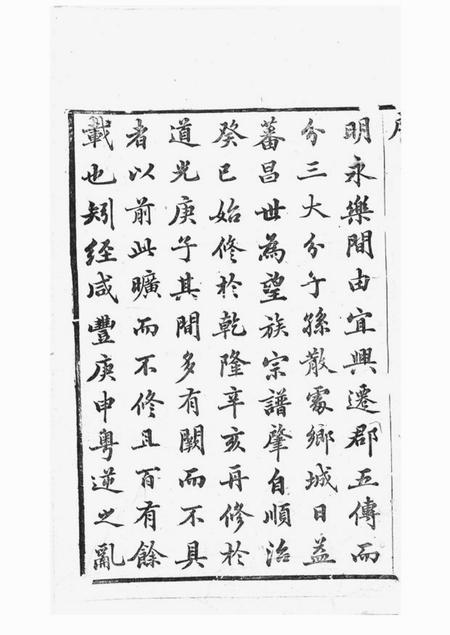 明永樂間由宜興遷郡五傳而
分三大分子孫散處鄉城日益
蕃昌世為望族宗譜肇自順治
癸巳始修於乾隆辛亥再修於
道光庚子其間多有闕而不具
者以前此曠而不修且百有餘
載也矧經咸豐庚申粵逆之亂